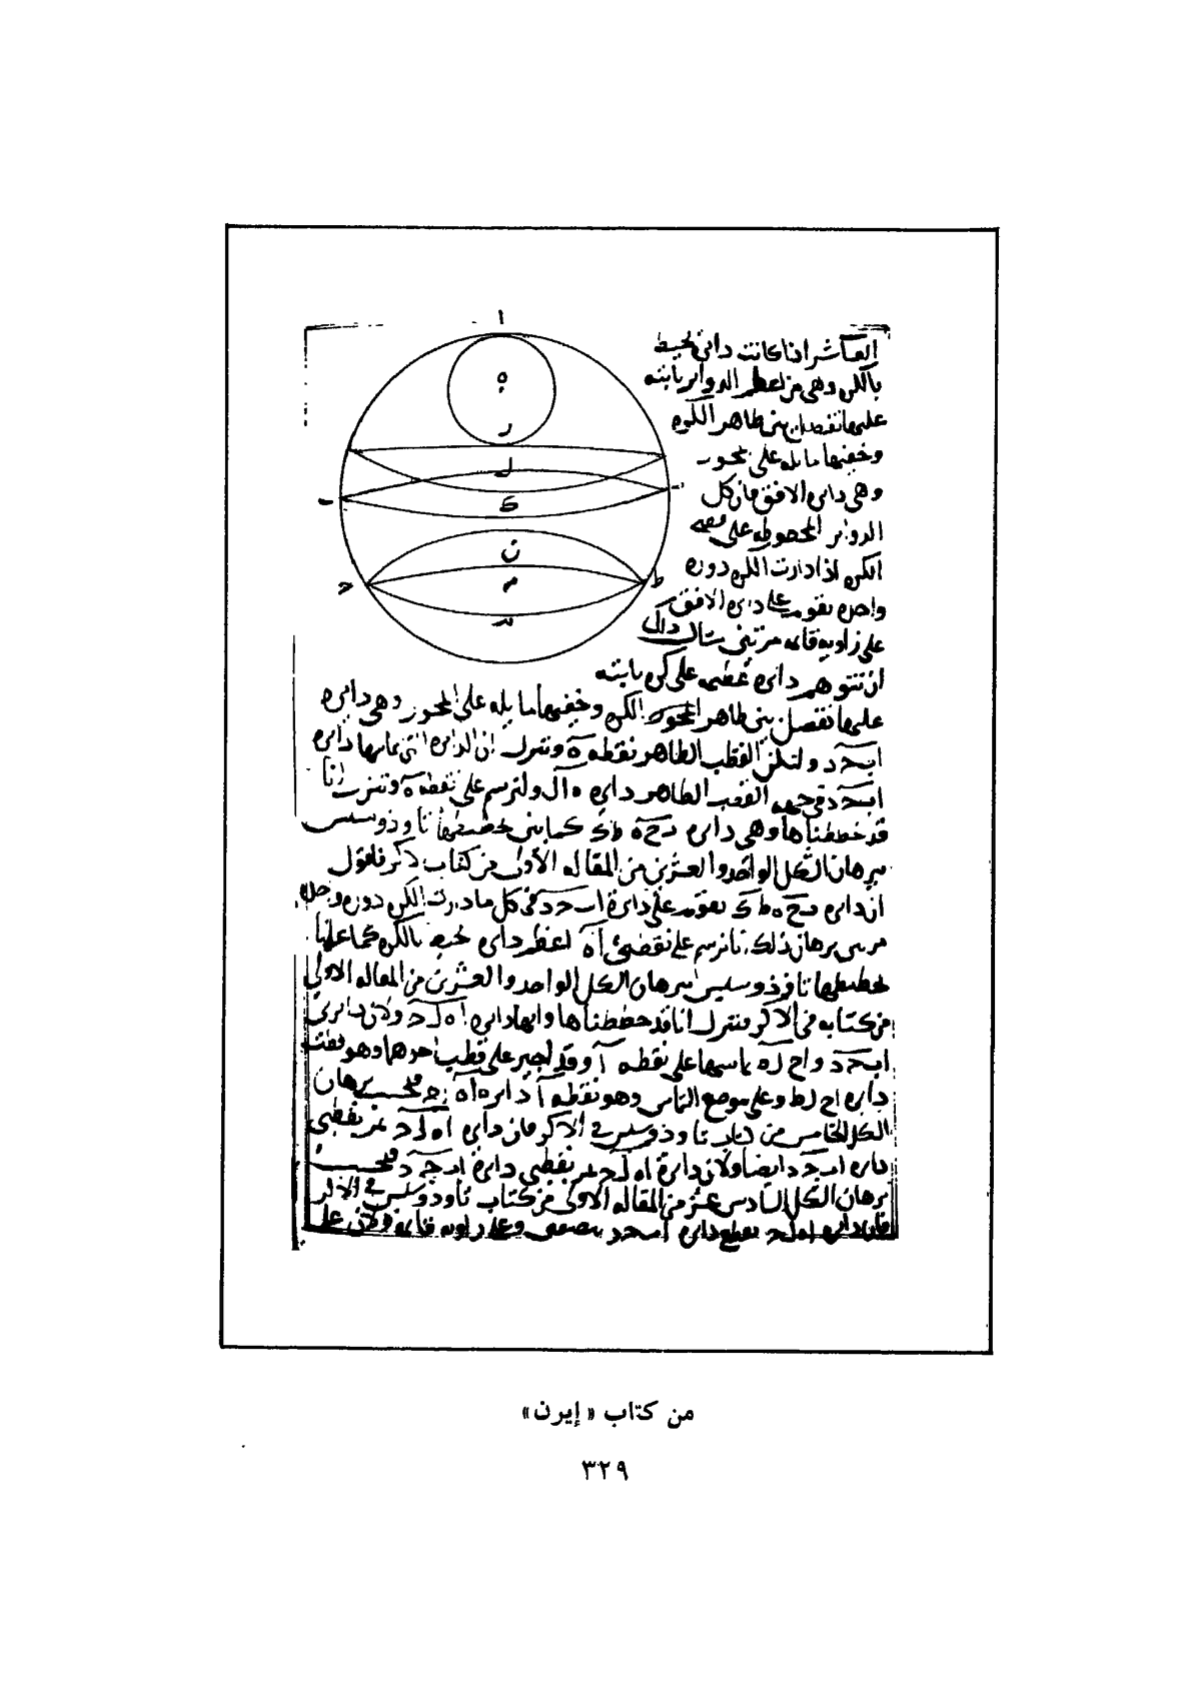 ا
ه
ر
ل
ك
ن
م
ح
ط
العاشر اذا كانت دائرة تحيط
بالكره وهي من اعظم الدواير ثابته
عليها تفصل بين ظاهر الكره
وخفيها مايله على المحور
وهي دايره الافق فان كل
الدواير المخطوطه على
الكره اذا دارت الكره دوره
واحده تقوم على دايره الافق
على زاويه قايمه مرتين مثال ذلك
ان نتوهم دايره عظمى على كره ثابته
عليها تفصل بين ظاهر الكره وخفيها مايله على المحور وهي دايره
ا ب ح د وليكن القطب الظاهر نقطه ه وننزل ان الدايره التي تماسها دايره
ا ب ح د في جهه القطب الظاهر دايره ولنرسم على نقطه وننزل انا
قد خططناها وهي دايره كما بين تخطيطها ثاوذوسيس
ببرهان الشكل الواحد والعشرين من المقاله الاولى من كتاب الاكر فاقول
ان دايره تقوم على دايرة ا ب ح د في كل ما دارت الكره دوره واحده
مرتين برهان ذلك انا نرسم على نقطتي ا ه اعظم دايره تحيط بالكره كما علمنا
تخطيطها ثاوذوسيس ببرهان الشكل الواحد والعشرين من المقاله الاولى
من كتابه في الاكر وننزل انا قد خططناها وانها دايره ا ه ل ح ولان دايرتي
ا ب ح د تماسها على نقطه ا وقد اجيز على قطب احدهما وهو قطب
دايره وعلى موضع التماس وهو نقطه ا دايره فيجب ببرهان
الشكل الخامس من كتاب ثاوذوسيس في الاكر فان دايره ا ه ل ح تمر بقطبي
دايره ا ب ح د ايضا ولان دايرة ا ه ل ح تمر بقطبي دايرة ا ب ح د فيجب
ببرهان الشكل السادس عشر من المقاله الاولى من كتاب ثاوذوسيس في الاكر
فان دايره ا ه ل ح تقطع دايره ا ب ح د بنصفين وعلى زاويه قايمه على
من كتاب « إيرن »
٣٢٩